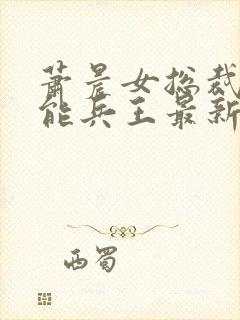 萧晨女总裁
能兵王最新
西蜀